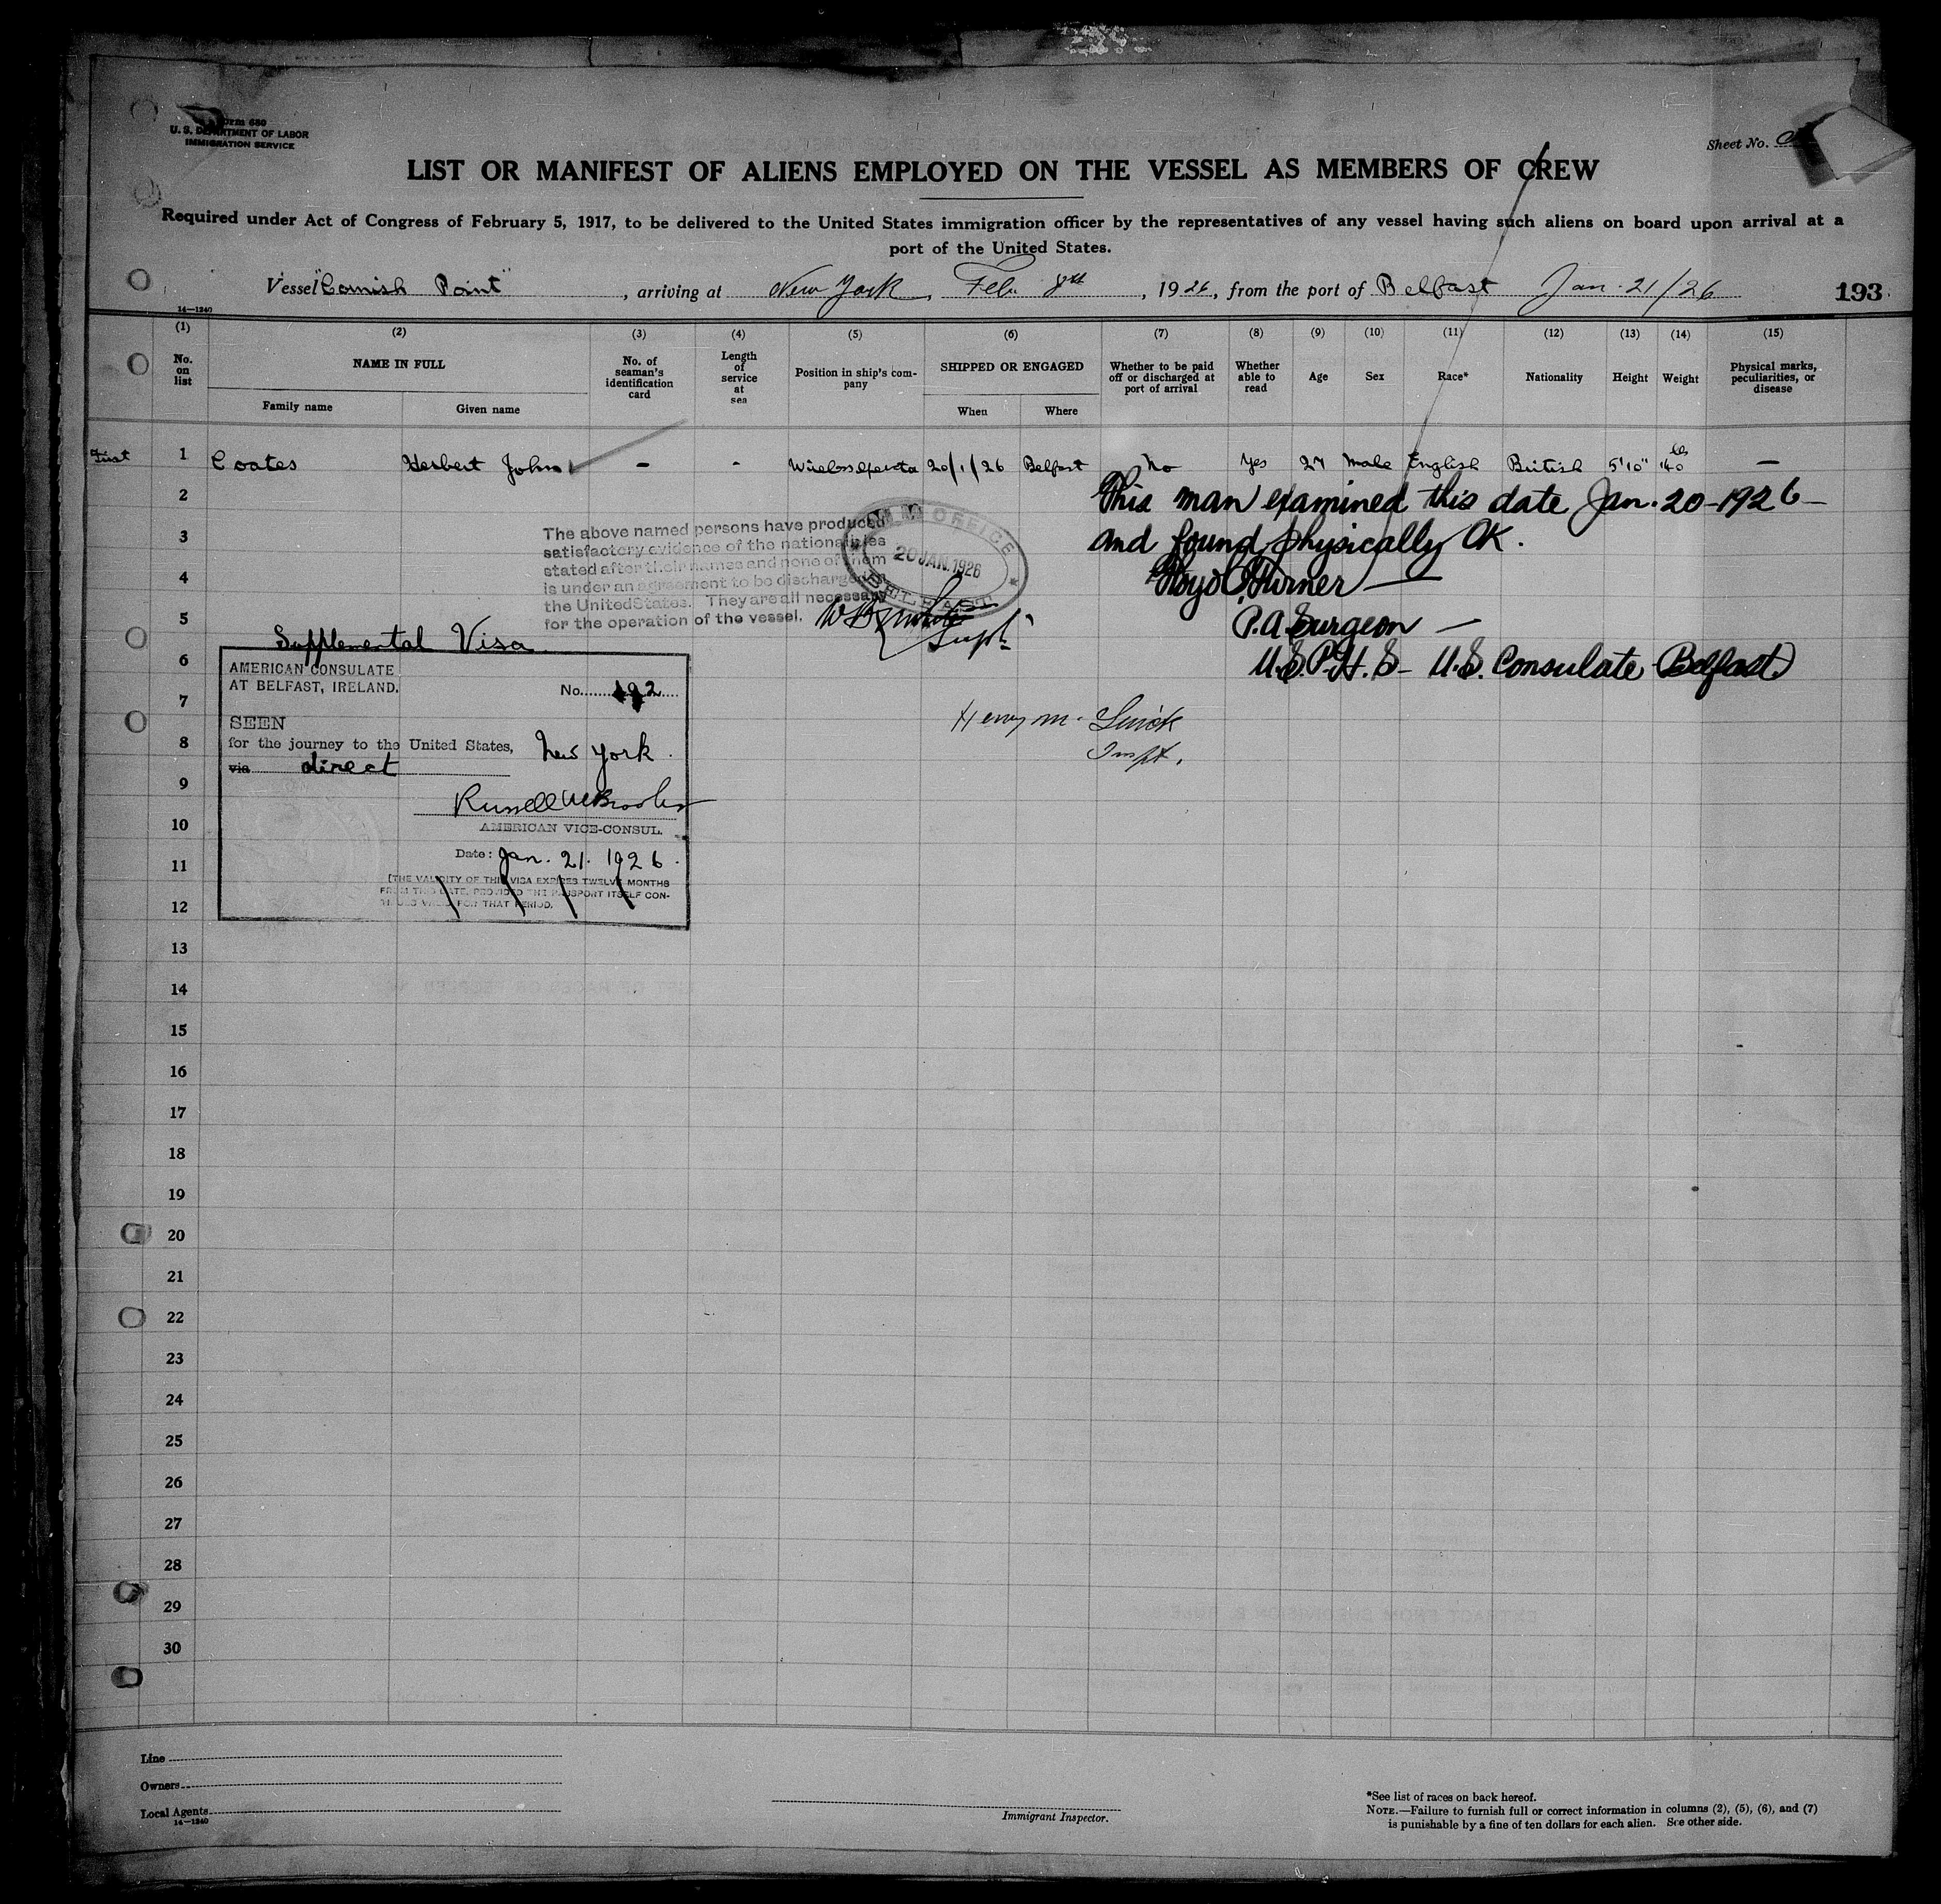 Form 680
U. S. DEPARTMENT OF LABOR
IMMIGRATION SERVICE
Sheet No.
LIST OR MANIFEST OF ALIENS EMPLOYED ON THE VESSEL AS MEMBERS OF CREW
Required under Act of Congress of February 5, 1917, to be delivered to the United States immigration officer by the representatives of any vessel having such aliens on board upon arrival at a
port of the United States.
Vessel "Cornish Point", arriving at New York, Feb. 8th, 1926, from the port of Belfast Jan. 21/26
193
14—1240
(1) (2) (3) (4) (5) (6) (7) (8) (9) (10) (11) (12) (13) (14) (15)
No. on list
NAME IN FULL
Family name Given name
No. of seaman's identification card
Length of service at sea
Position in ship's company
SHIPPED OR ENGAGED
When Where
Whether to be paid off or discharged at port of arrival
Whether able to read
Age
Sex
Race*
Nationality
Height
Weight
Physical marks, peculiarities, or disease
First 1 Coates Herbert John - - Wireless Operator 20/1/26 Belfast No Yes 27 Male English British 5'10" 140 lbs —
2
This man examined this date Jan. 20-1926-
3
and found physically OK.
4
Turner —
5
P.A. Surgeon —
6
U.S.P.H.S- U.S. Consulate Belfast
7
8
9
10
11
12
13
14
15
16
17
18
19
20
21
22
23
24
25
26
27
28
29
30
The above named persons have produced
satisfactory evidence of the nationalities
stated after their names and none of them
is under an agreement to be discharged in
the United States. They are all necessary
for the operation of the vessel.
OFFICE
20 JAN. 1926
BELFAST
Supt.
Supplemental Visa
AMERICAN CONSULATE
AT BELFAST, IRELAND.
No. 192
SEEN
for the journey to the United States, New York.
via direct
Russell M Brooks
AMERICAN VICE-CONSUL.
Date: Jan. 21. 1926.
(THE VALIDITY OF THIS VISA EXPIRES TWELVE MONTHS
FROM THIS DATE, PROVIDED THE PASSPORT ITSELF CON-
TINUES VALID FOR THAT PERIOD.
Henry M.
Inspt.
Line
Owners
Local Agents
14—1240
Immigrant Inspector.
*See list of races on back hereof.
NOTE.—Failure to furnish full or correct information in columns (2), (5), (6), and (7)
is punishable by a fine of ten dollars for each alien. See other side.